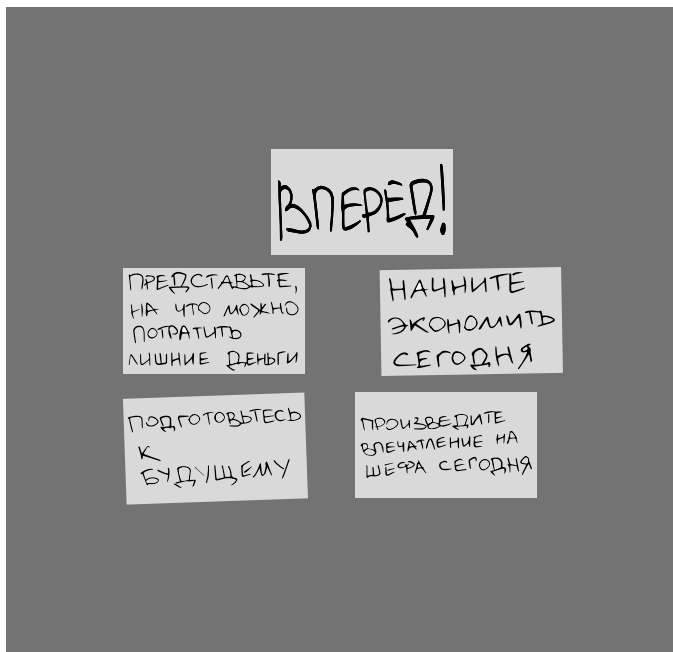 ВПЕРЁД!
ПРЕДСТАВЬТЕ,
НА ЧТО МОЖНО
ПОТРАТИТЬ
ЛИШНИЕ ДЕНЬГИ
НАЧНИТЕ
ЭКОНОМИТЬ
СЕГОДНЯ
ПОДГОТОВЬТЕСЬ
К
БУДУЩЕМУ
ПРОИЗВЕДИТЕ
ВПЕЧАТЛЕНИЕ НА
ШЕФА СЕГОДНЯ